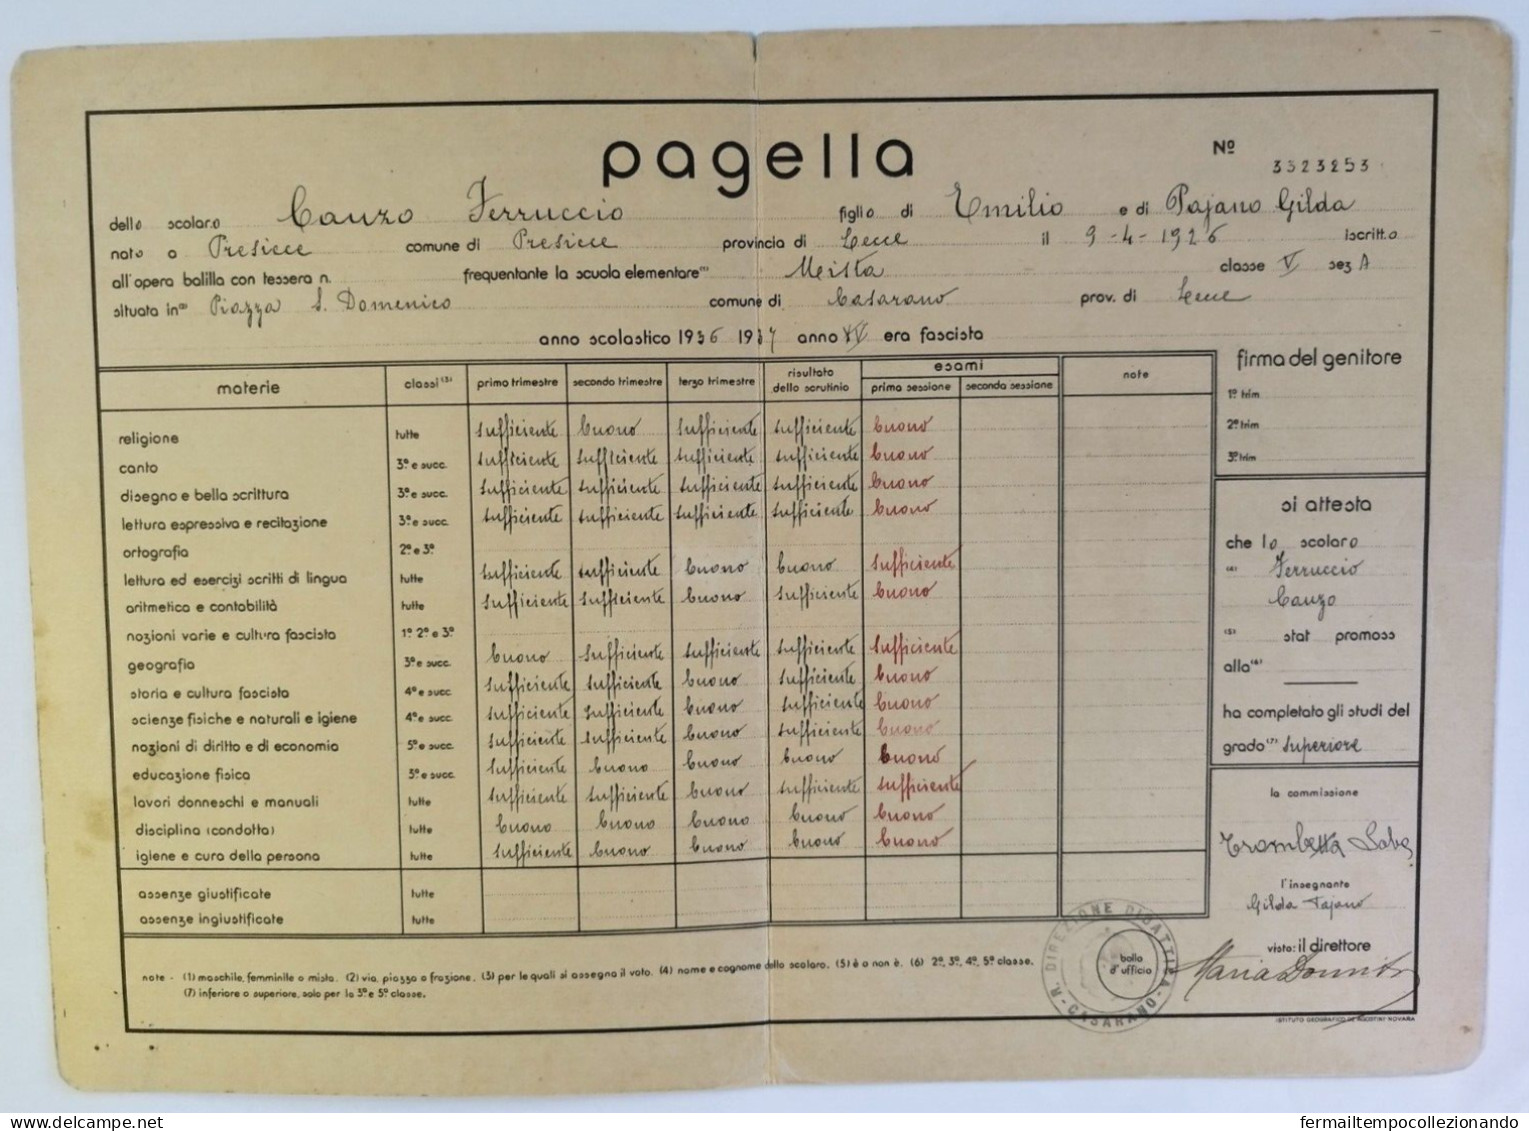 pagella
Nº 3323253
dello scolaro Canzo Ferruccio figlio di Emilio e di Pajano Gilda
nato a Presicce comune di Presicce provincia di Lecce il 9-4-1926 iscritto
all'opera balilla con tessera n. frequentante la scuola elementare(1) Mista classe V sez A
situata in(2) Piazza S. Domenico comune di Casarano prov. di Lecce
anno scolastico 1936 1937 anno XV era fascista
materie classi(3) primo trimestre secondo trimestre terzo trimestre risultato dello scrutinio esami prima sessione seconda sessione note
religione tutte sufficiente buono sufficiente sufficiente buono
canto 3ª e succ. sufficiente sufficiente sufficiente sufficiente buono
disegno e bella scrittura 3ª e succ. sufficiente sufficiente sufficiente sufficiente buono
lettura espressiva e recitazione 3ª e succ. sufficiente sufficiente sufficiente sufficiente buono
ortografia 2ª e 3ª
lettura ed esercizi scritti di lingua tutte sufficiente sufficiente buono buono sufficiente
aritmetica e contabilità tutte sufficiente sufficiente buono sufficiente buono
nozioni varie e cultura fascista 1ª 2ª e 3ª
geografia 3ª e succ. buono sufficiente sufficiente sufficiente sufficiente
storia e cultura fascista 4ª e succ. sufficiente sufficiente buono sufficiente buono
scienze fisiche e naturali e igiene 4ª e succ. sufficiente sufficiente buono sufficiente buono
nozioni di diritto e di economia 5ª e succ. sufficiente sufficiente buono sufficiente buono
educazione fisica 3ª e succ. sufficiente buono buono buono buono
lavori donneschi e manuali tutte sufficiente sufficiente buono sufficiente sufficiente
disciplina (condotta) tutte buono buono buono buono buono
igiene e cura della persona tutte sufficiente buono buono buono buono
assenze giustificate tutte
assenze ingiustificate tutte
firma del genitore
1º trim
2º trim
3º trim
si attesta
che lo scolaro
(4) Ferruccio
Canzo
(5) stat promoss
alla(6)
ha completato gli studi del
grado(7) superiore
la commissione
Trombetta
l'insegnante
Gilda Pajano
visto: il direttore
Maria
bollo
d'ufficio
R. DIREZIONE DIDATTICA - CASARANO -
note - (1) maschile, femminile o mista. (2) via, piazza o frazione. (3) per le quali si assegna il voto. (4) nome e cognome dello scolaro. (5) è o non è. (6) 2ª, 3ª, 4ª, 5ª classe.
(7) inferiore o superiore, solo per la 3ª e 5ª classe.
ISTITUTO GEOGRAFICO DE AGOSTINI NOVARA
www.delcampe.net
fermailtempocollezionando